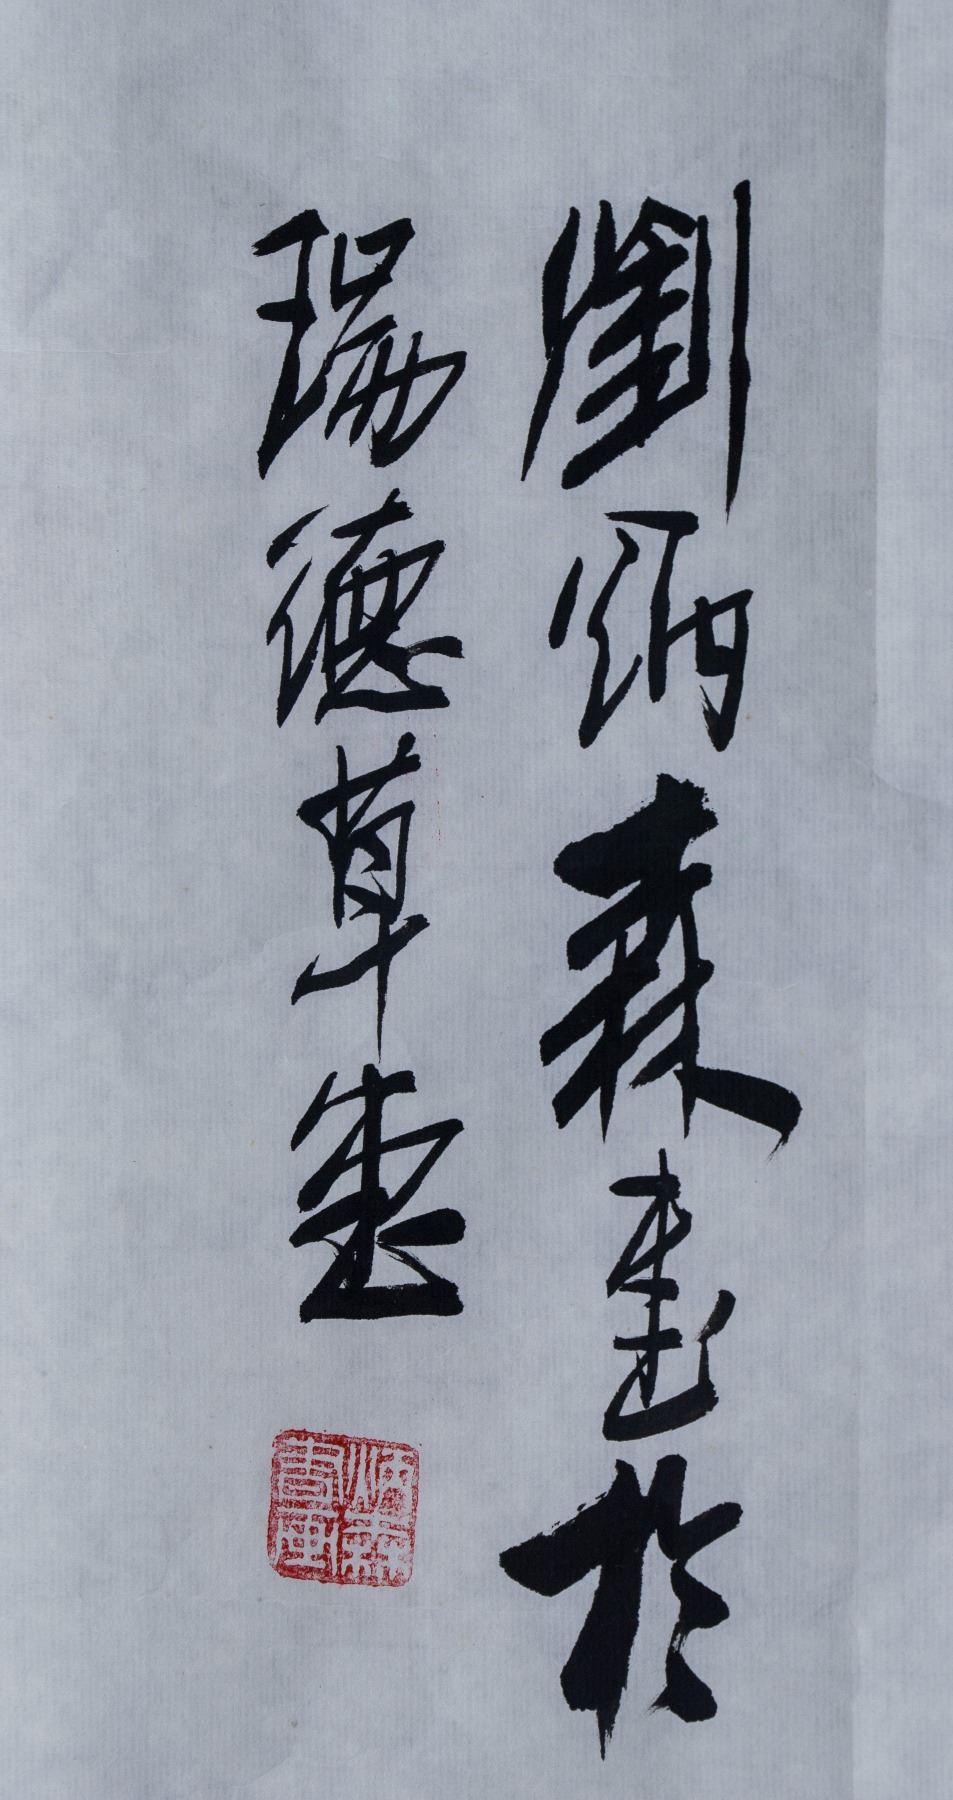 劉炳森畫於
瑞德草堂
炳森
書画